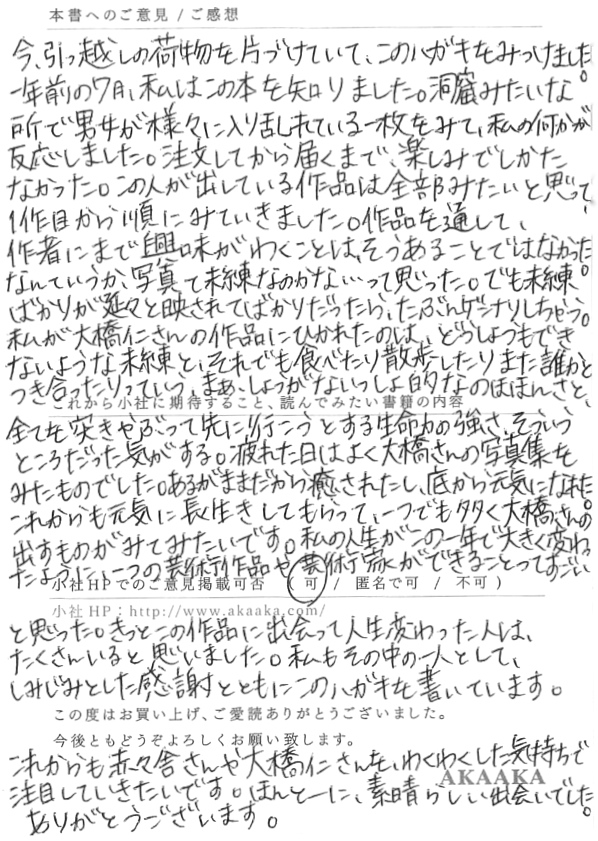 本書へのご意見 / ご感想
今、引っ越しの荷物を片づけていて、このハガキをみつけました。
一年前の7月、私はこの本を知りました。洞窟みたいな
所で男女が様々に入り乱れている一枚をみて、私の何かが
反応しました。注文してから届くまで、楽しみでしかた
なかった。この人が出している作品は全部みたいと思って、
1作目から順にみていきました。作品を通して、
作者にまで興味がわくことは、そうあることではなかった。
なんていうか、写真て未練なのかな…って思った。でも未練
ばかりが延々と映されてばかりだったら、たぶんゲンナリしちゃう。
私が大橋仁さんの作品にひかれたのは、どうしようもでき
ないような未練と、それでも食べたり散歩したりまた誰かと
つき合ったりっていう、まぁ、しょうがないっしょ的なのほほんさと、
これから小社に期待すること、読んでみたい書籍の内容
全てを突きやぶって先に行こうとする生命力の強さ、そういう
ところだった気がする。疲れた日はよく大橋さんの写真集を
みたものでした。あるがままだから癒されたし、底から元気になれた。
これからも元気に長生きしてもらって、一つでも多く大橋さんの
出すものがみてみたいです。私の人生がこの一年で大きく変わっ
たように、一つの芸術作品や芸術家ができることってすごい
小社HPでのご意見掲載可否 ( 可 / 匿名で可 / 不可 )
小社HP：http://www.akaaka.com/
と思った。きっとこの作品に出会って人生変わった人は、
たくさんいると思いました。私もその中の一人として、
しみじみとした感謝とともにこのハガキを書いています。
この度はお買い上げ、ご愛読ありがとうございました。
今後ともどうぞよろしくお願い致します。
これからも赤々舎さんや大橋仁さんを、わくわくした気持ちで
AKAAKA
注目していきたいです。ほんとーに、素晴らしい出会いでした。
ありがとうございます。